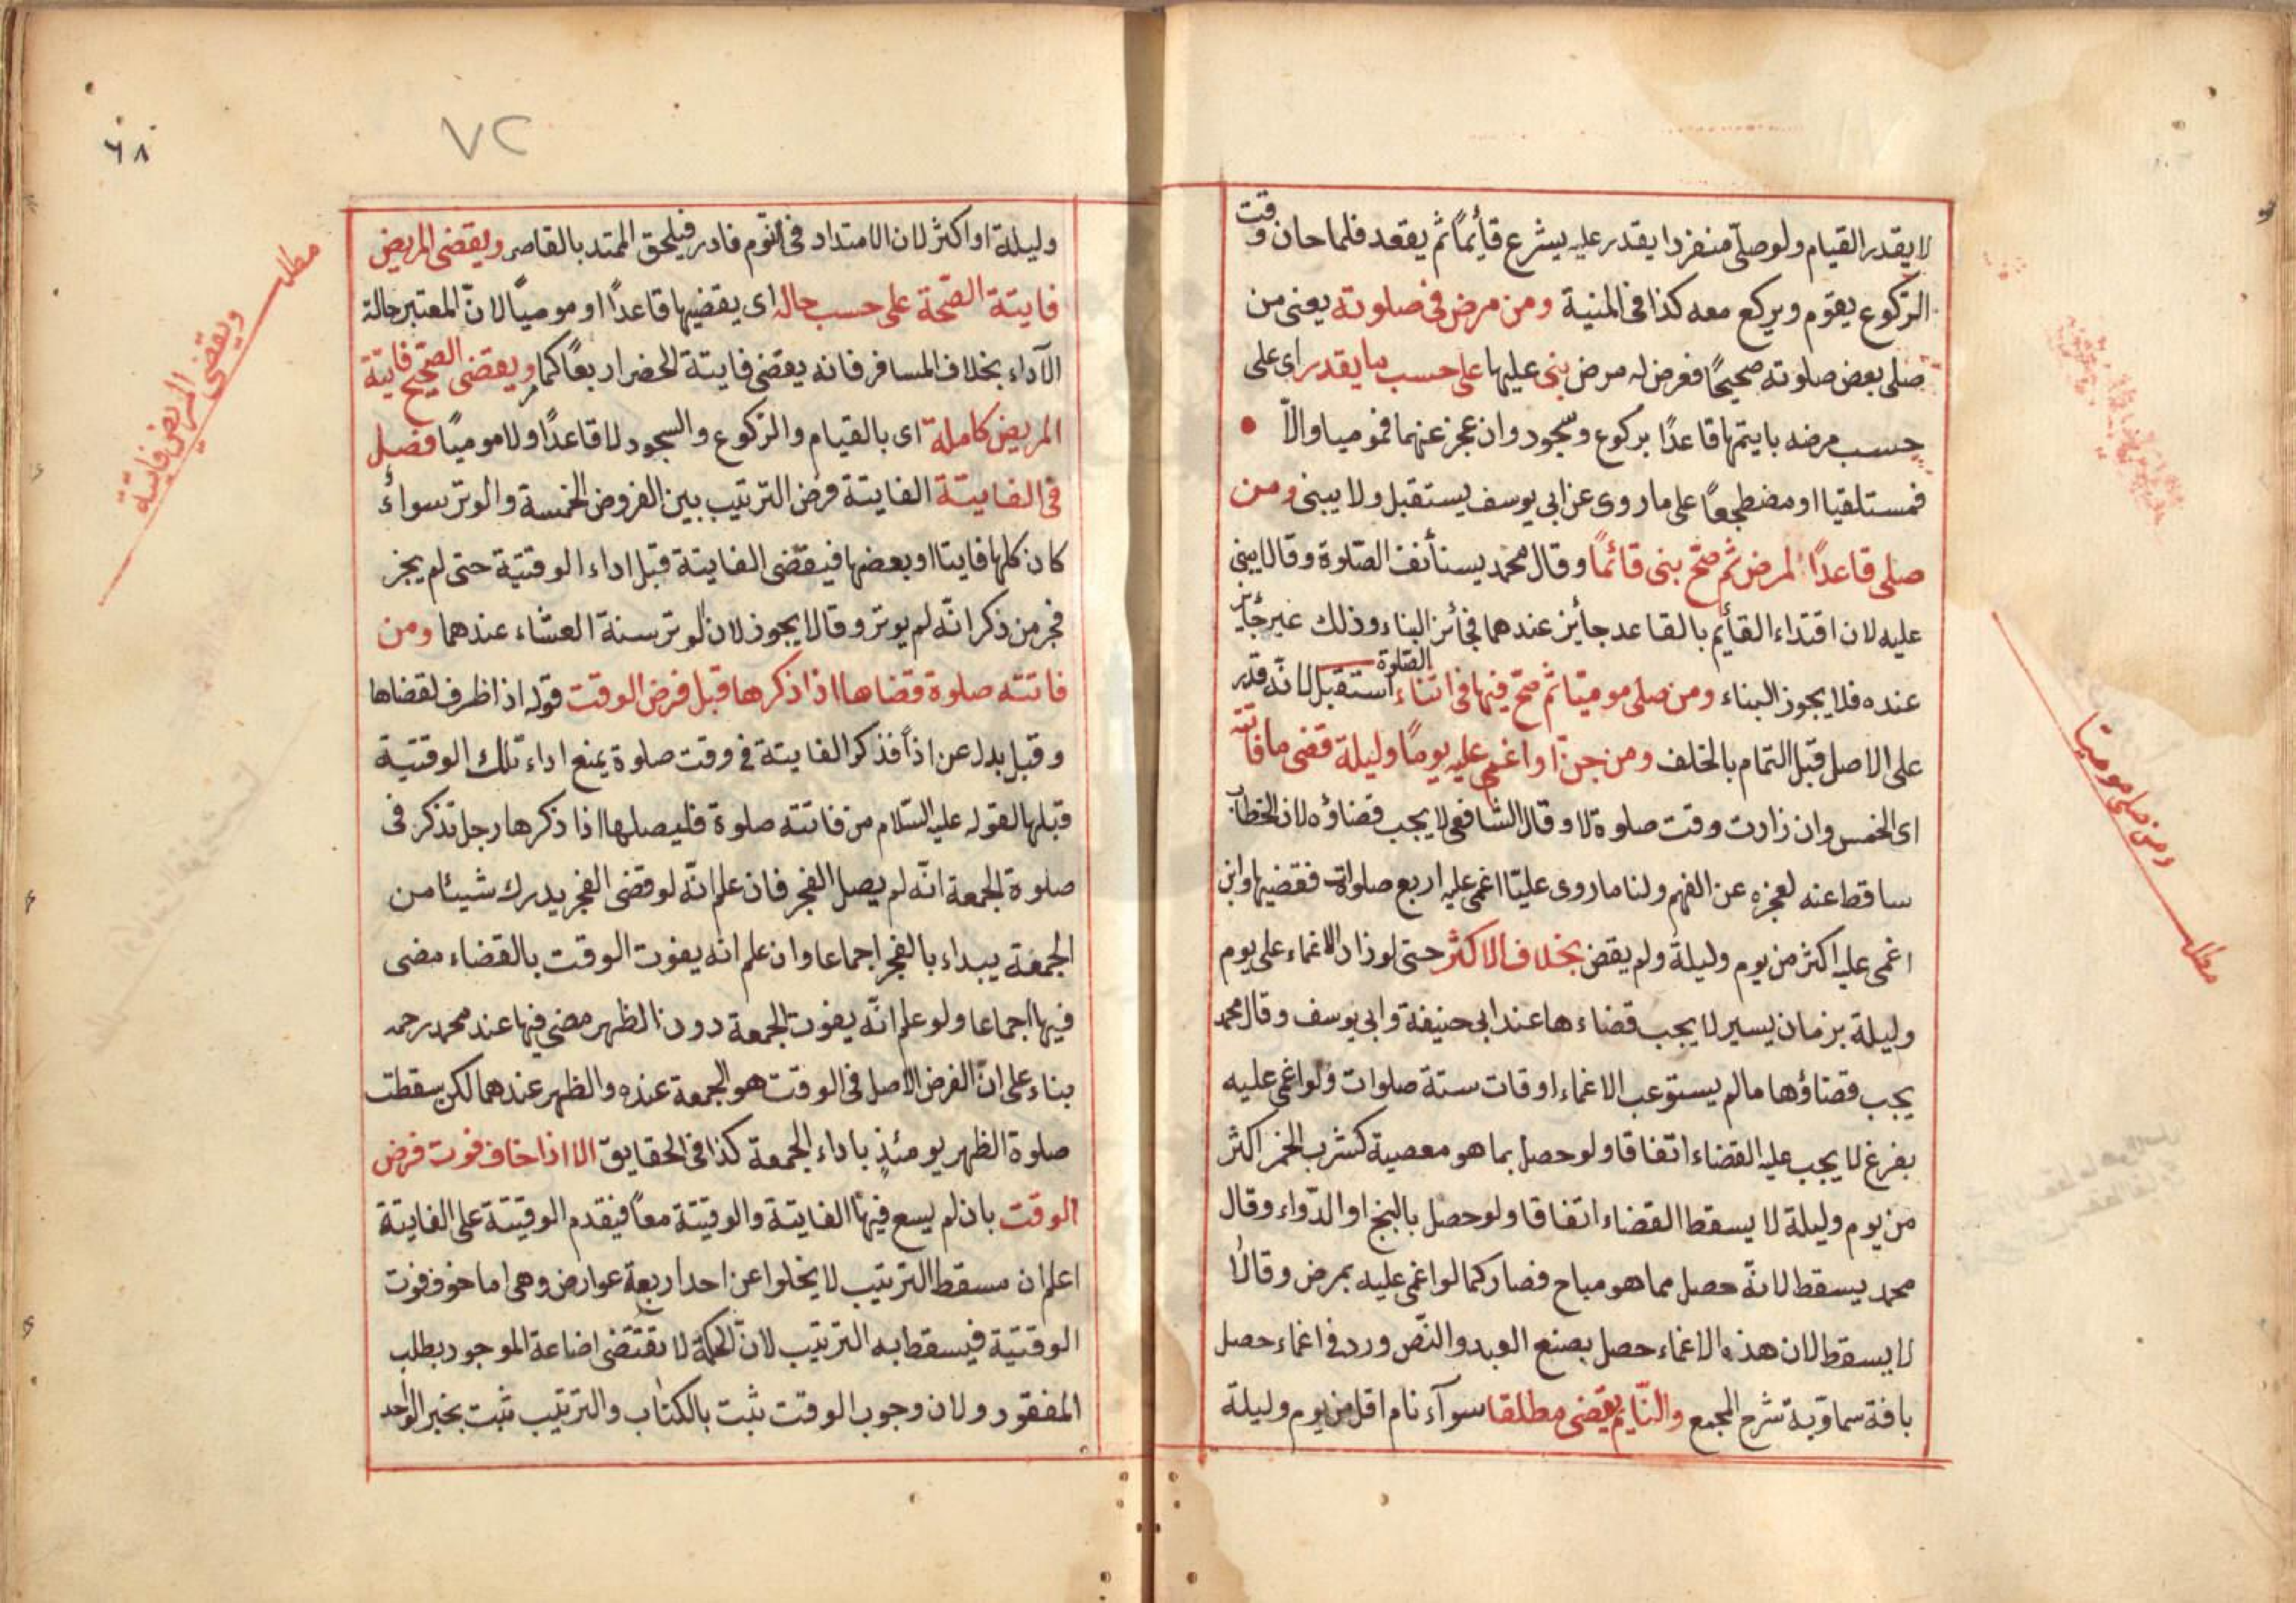 لا يقدر القيام ولو صلّى منفردا يقدر عليه يشرع قأئماً ثم يقعد فلما حان وقت
الركوع يقوم ويركع معه كذا فى المنية ومن مرض فى صلوته يعنى من
صلى بعض صلوته صحيحاً فعرض له مرض بنى عليها على حسب ما يقدر اى على
حسب مرضه بايتمها قاعدًا بركوع وسجود وان عجز عنهما فموميا والاّ
فمستلقيا او مضطجعاً على ما روى عن ابى يوسف يستقبل ولا يبنى ومن
صلى قاعدًا لمرض ثم صح بنى قائماً وقال محمد يستأنف الصّلوة وقالا يبنى
عليه لان اقتداء القأيم بالقاعد جأيز عندهما فجأئز البناء وذلك غير جأيز
عنده فلا يجوز البناء ومن صلى موميّا ثم صحّ فيها فى اثناء الصّلوة استقبل لانّه قدر
على الاصل قبل التمام بالخلف ومن جنّ او اغمى عليه يومًا وليلة قضى ما فاتته
اى الخمس وان زادت وقت صلوة لا وقال الشافعى لا يجب قضاؤه لان الخطاب
ساقط عنه لعجزه عن الفهم ولنا ما روى عليّا اغمى عليه اربع صلوات فقضيها وابن
اغمى عليه اكثر من يوم وليلة ولم يقض بخلاف الاكثر حتى لو زاد الاغماء على يوم
وليلة بزمان يسير لا يجب قضاءها عند ابى حنيفة وابى يوسف وقال محمد
يجب قضاؤها ما لم يستوعب الاغماء اوقات ستة صلوات ولو اغمى عليه
بفزع لا يجب عليه القضاء اتفاقا ولو حصل بما هو معصية كشرب الخمر اكثر
من يوم وليلة لا يسقط القضاء اتفاقا ولو حصل بالبنج او الدّواء وقال
محمد يسقط لانّه حصل مما هو مباح فصار كما لو اغمى عليه بمرض وقالا
لا يسقط لان هذه الاغماء حصل بصنع العبد والنّص ورد فى اغماء حصل
بافة سماويّة شرح المجمع والنّايم يقضى مطلقا سوآء نام اقل من يوم وليلة
ومن صلى موميّا
مطلب
٧٢
٦٨
وليلة او اكثر لان الامتداد فى النّوم نادر فيلحق الممتد بالقاصر ويقضى المريض
فايتة الصّحة على حسب حاله اى يقضيها قاعدًا او موميًا لانّ المعتبر حالة
الآداء بخلاف المسافر فانه يقضى فايتة الحضر اربعًا كما مر ويقضى الصّحيح فايتة
المريض كاملة اى بالقيام والركوع والسجود لا قاعدًا ولا موميًا فصل
فى الفايتة الفايتة فرض الترتيب بين الفروض الخمسة والوتر سواءً
كان كلها فايتا او بعضها فيقضى الفايتة قبل اداء الوقتية حتى لم يجز
فجر من ذكر انّه لم يوتر وقالا يجوز لان الوتر سنة العشاء عندهما ومن
فاتته صلوة قضاها اذا ذكرها قبل فرض الوقت قوله اذا ظرف لقضاها
وقبل بدل عن اذاً فذكر الفايتة فى وقت صلوة يمنع اداء تلك الوقتية
قبلها لقوله عليه السّلام من فاتته صلوة فليصلها اذا ذكرها رجل تذكر فى
صلوة الجمعة انّه لم يصل الفجر فان علم انّه لو قضى الفجر يدرك شيئا من
الجمعة يبداء بالفجر اجماعا وان علم انه يفوت الوقت بالقضاء مضى
فيها اجماعا ولو علم انّه يفوت الجمعة دون الظهر مضى فيها عند محمد رحمه
بناء على انّ الفرض الاصل فى الوقت هو الجمعة عنده والظهر عندهما لكن سقطت
صلوة الظهر يومئذٍ باداء الجمعة كذا فى الحقايق الا اذا خاف فوت فرض
الوقت بان لم يسع فيها الفايتة والوقيتة معاً فيقدم الوقيتة على الفايتة
اعلم ان مسقط الترتيب لا يخلوا عن احد اربعة عوارض وهى اما خوف فوت
الوقتية فيسقط به الترتيب لانّ الحكمة لا تقتضى اضاعة الموجود بطلب
المفقود ولان وجوب الوقت ثبت بالكتاب والترتيب ثبت بخبر الواحد
مطلب
ويقضى المريض فايتة